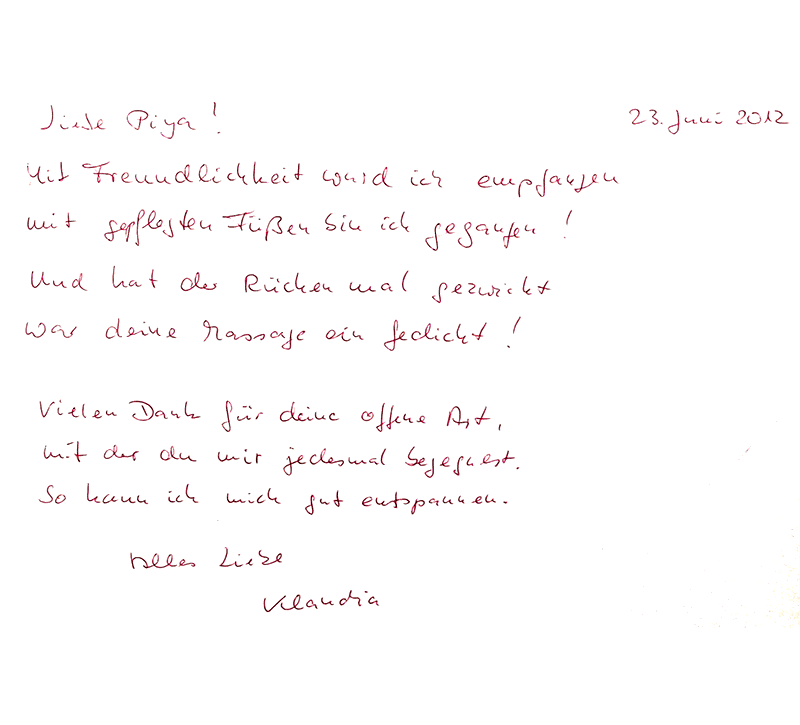 Liebe Piya! 23. Juni 2012
Mit Freundlichkeit wurd ich empfangen
mit gepflegten Füßen bin ich gegangen!
Und hat der Rücken mal gezwickt
war deine Massage ein Gedicht!
Vielen Dank für deine offene Art,
mit der du mir jedesmal begegnest.
So kann ich mich gut entspannen.
Alles Liebe
Klaudia